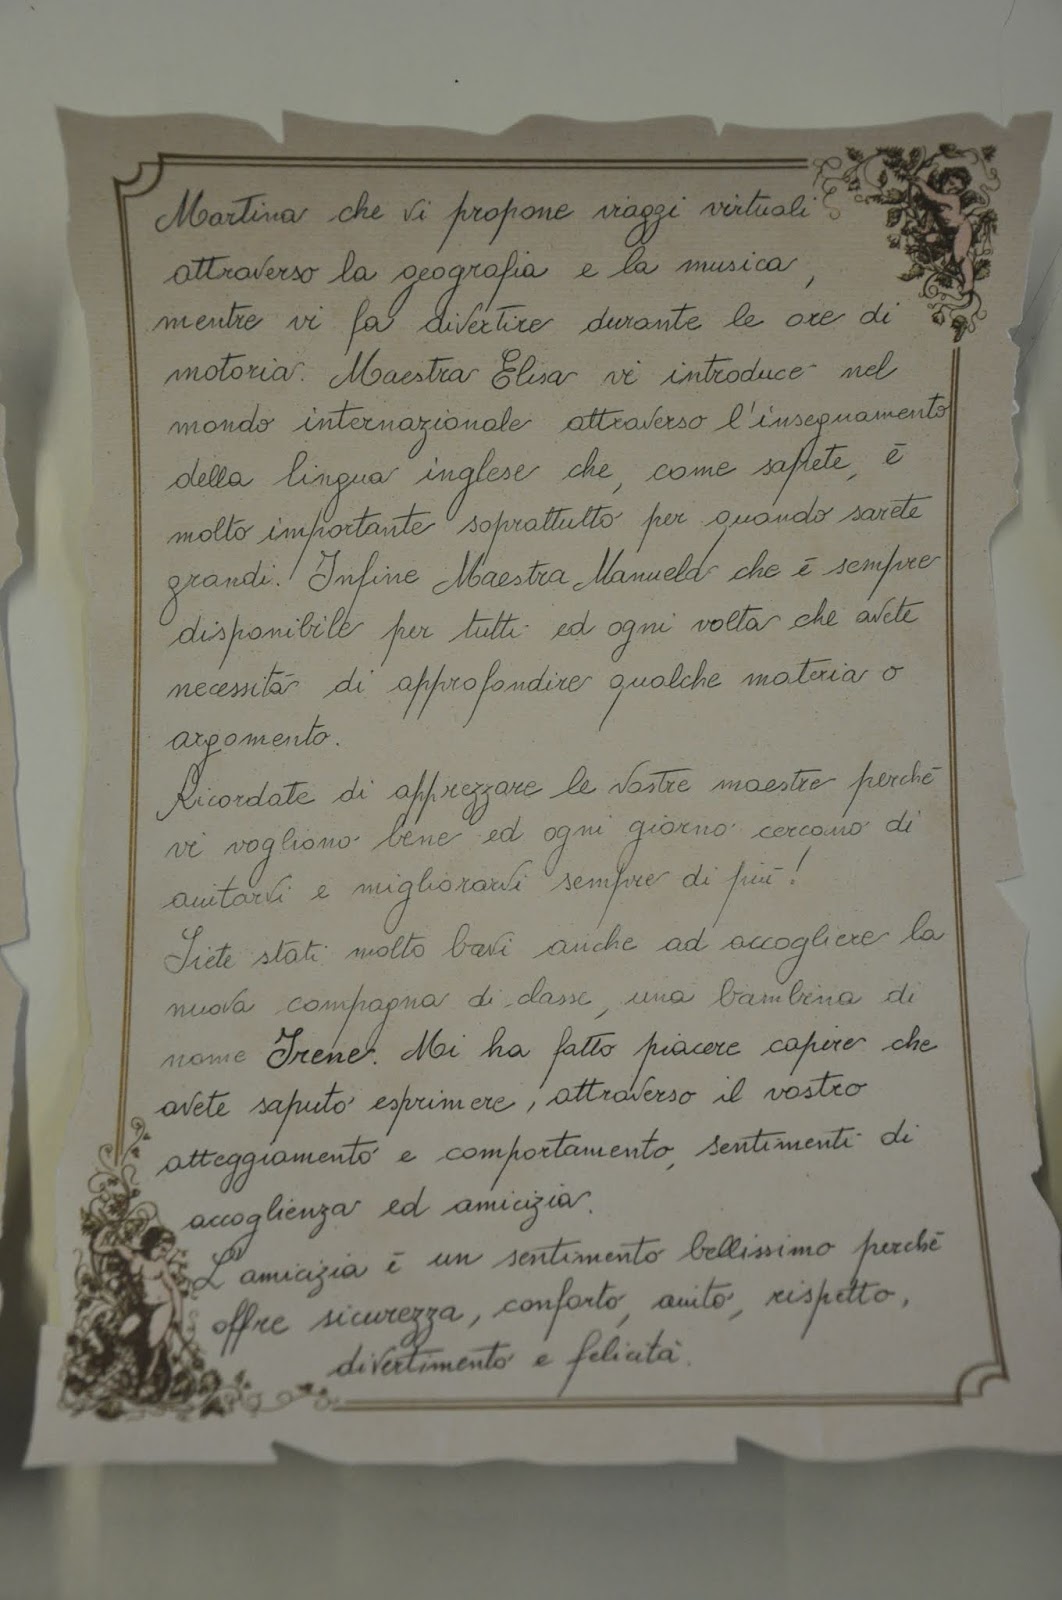 Martina che vi propone viaggi virtuali
attraverso la geografia e la musica,
mentre vi fa divertire durante le ore di
motoria. Maestra Elisa vi introduce nel
mondo internazionale attraverso l'insegnamento
della lingua inglese che, come sapete, è
molto importante soprattutto per quando sarete
grandi. Infine Maestra Manuela che è sempre
disponibile per tutti ed ogni volta che avete
necessità di approfondire qualche materia o
argomento.
Ricordate di apprezzare le vostre maestre perchè
vi vogliono bene ed ogni giorno cercano di
aiutarvi e migliorarvi sempre di più!
Siete stati molto bravi anche ad accogliere la
nuova compagna di classe, una bambina di
nome Irene. Mi ha fatto piacere capire che
avete saputo esprimere, attraverso il vostro
atteggiamento e comportamento, sentimenti di
accoglienza ed amicizia.
L'amicizia è un sentimento bellissimo perchè
offre sicurezza, conforto, aiuto, rispetto,
divertimento e felicità.